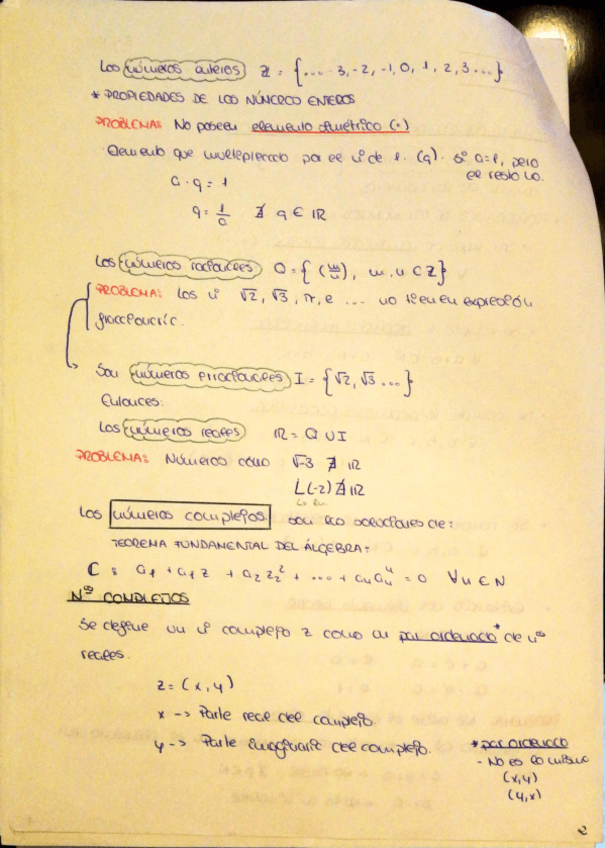 Los números enteros Z = {... -3, -2, -1, 0, 1, 2, 3...}
* PROPIEDADES DE LOS NÚMERCO ENTEROS
PROBLEMA: No poseen elemento simétrico (·)
Elemento que multiplicado por el nº de 1. (q). Si a=1, pero
el resto no.
a · q = 1
q = 1/a ∄ q ∈ IR
Los números racionales Q = { (m/n), m, n ∈ Z}
PROBLEMA: Los nº √2, √3, π, e ... no tienen expresión
fraccionaria.
Son números irracionales I = {√2, √3 ...}
Entonces:
Los números reales IR = Q ∪ I
PROBLEMA: Números como √-3 ∄ IR
L(-2) ∄ IR
Los números complejos son las soluciones de:
TEOREMA FUNDAMENTAL DEL ÁLGEBRA:
= 0 ∀n ∈ N
Nºs COMPLEJOS
Se define un nº complejo z como un par ordenado* de nºs
reales.
z = (x, y)
x -> Parte real del complejo.
y -> Parte imaginaria del complejo.
* par ordenado
- No es lo mismo
(x, y)
(y, x)
2